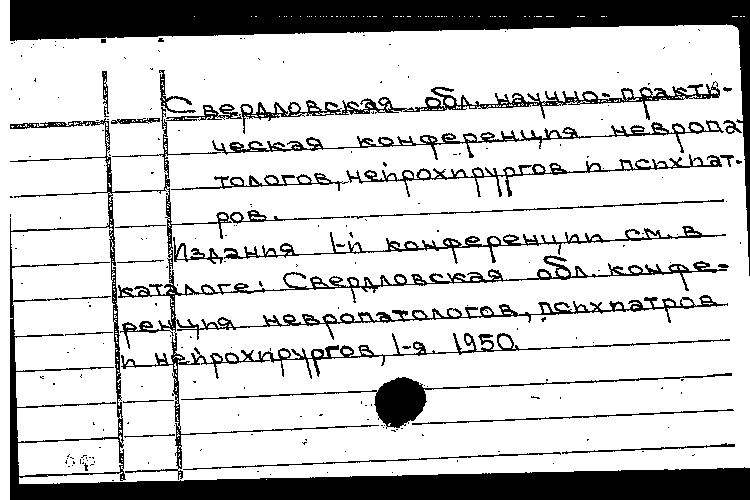 Свердловская обл. научно-практи-
ческая конференция невропа-
тологов, нейрохирургов и психиат-
ров.
Издания 1-й конференции см. в
каталоге: Свердловская обл. конфе-
ренция невропатологов, психиатров
и нейрохирургов, 1-я. 1950.